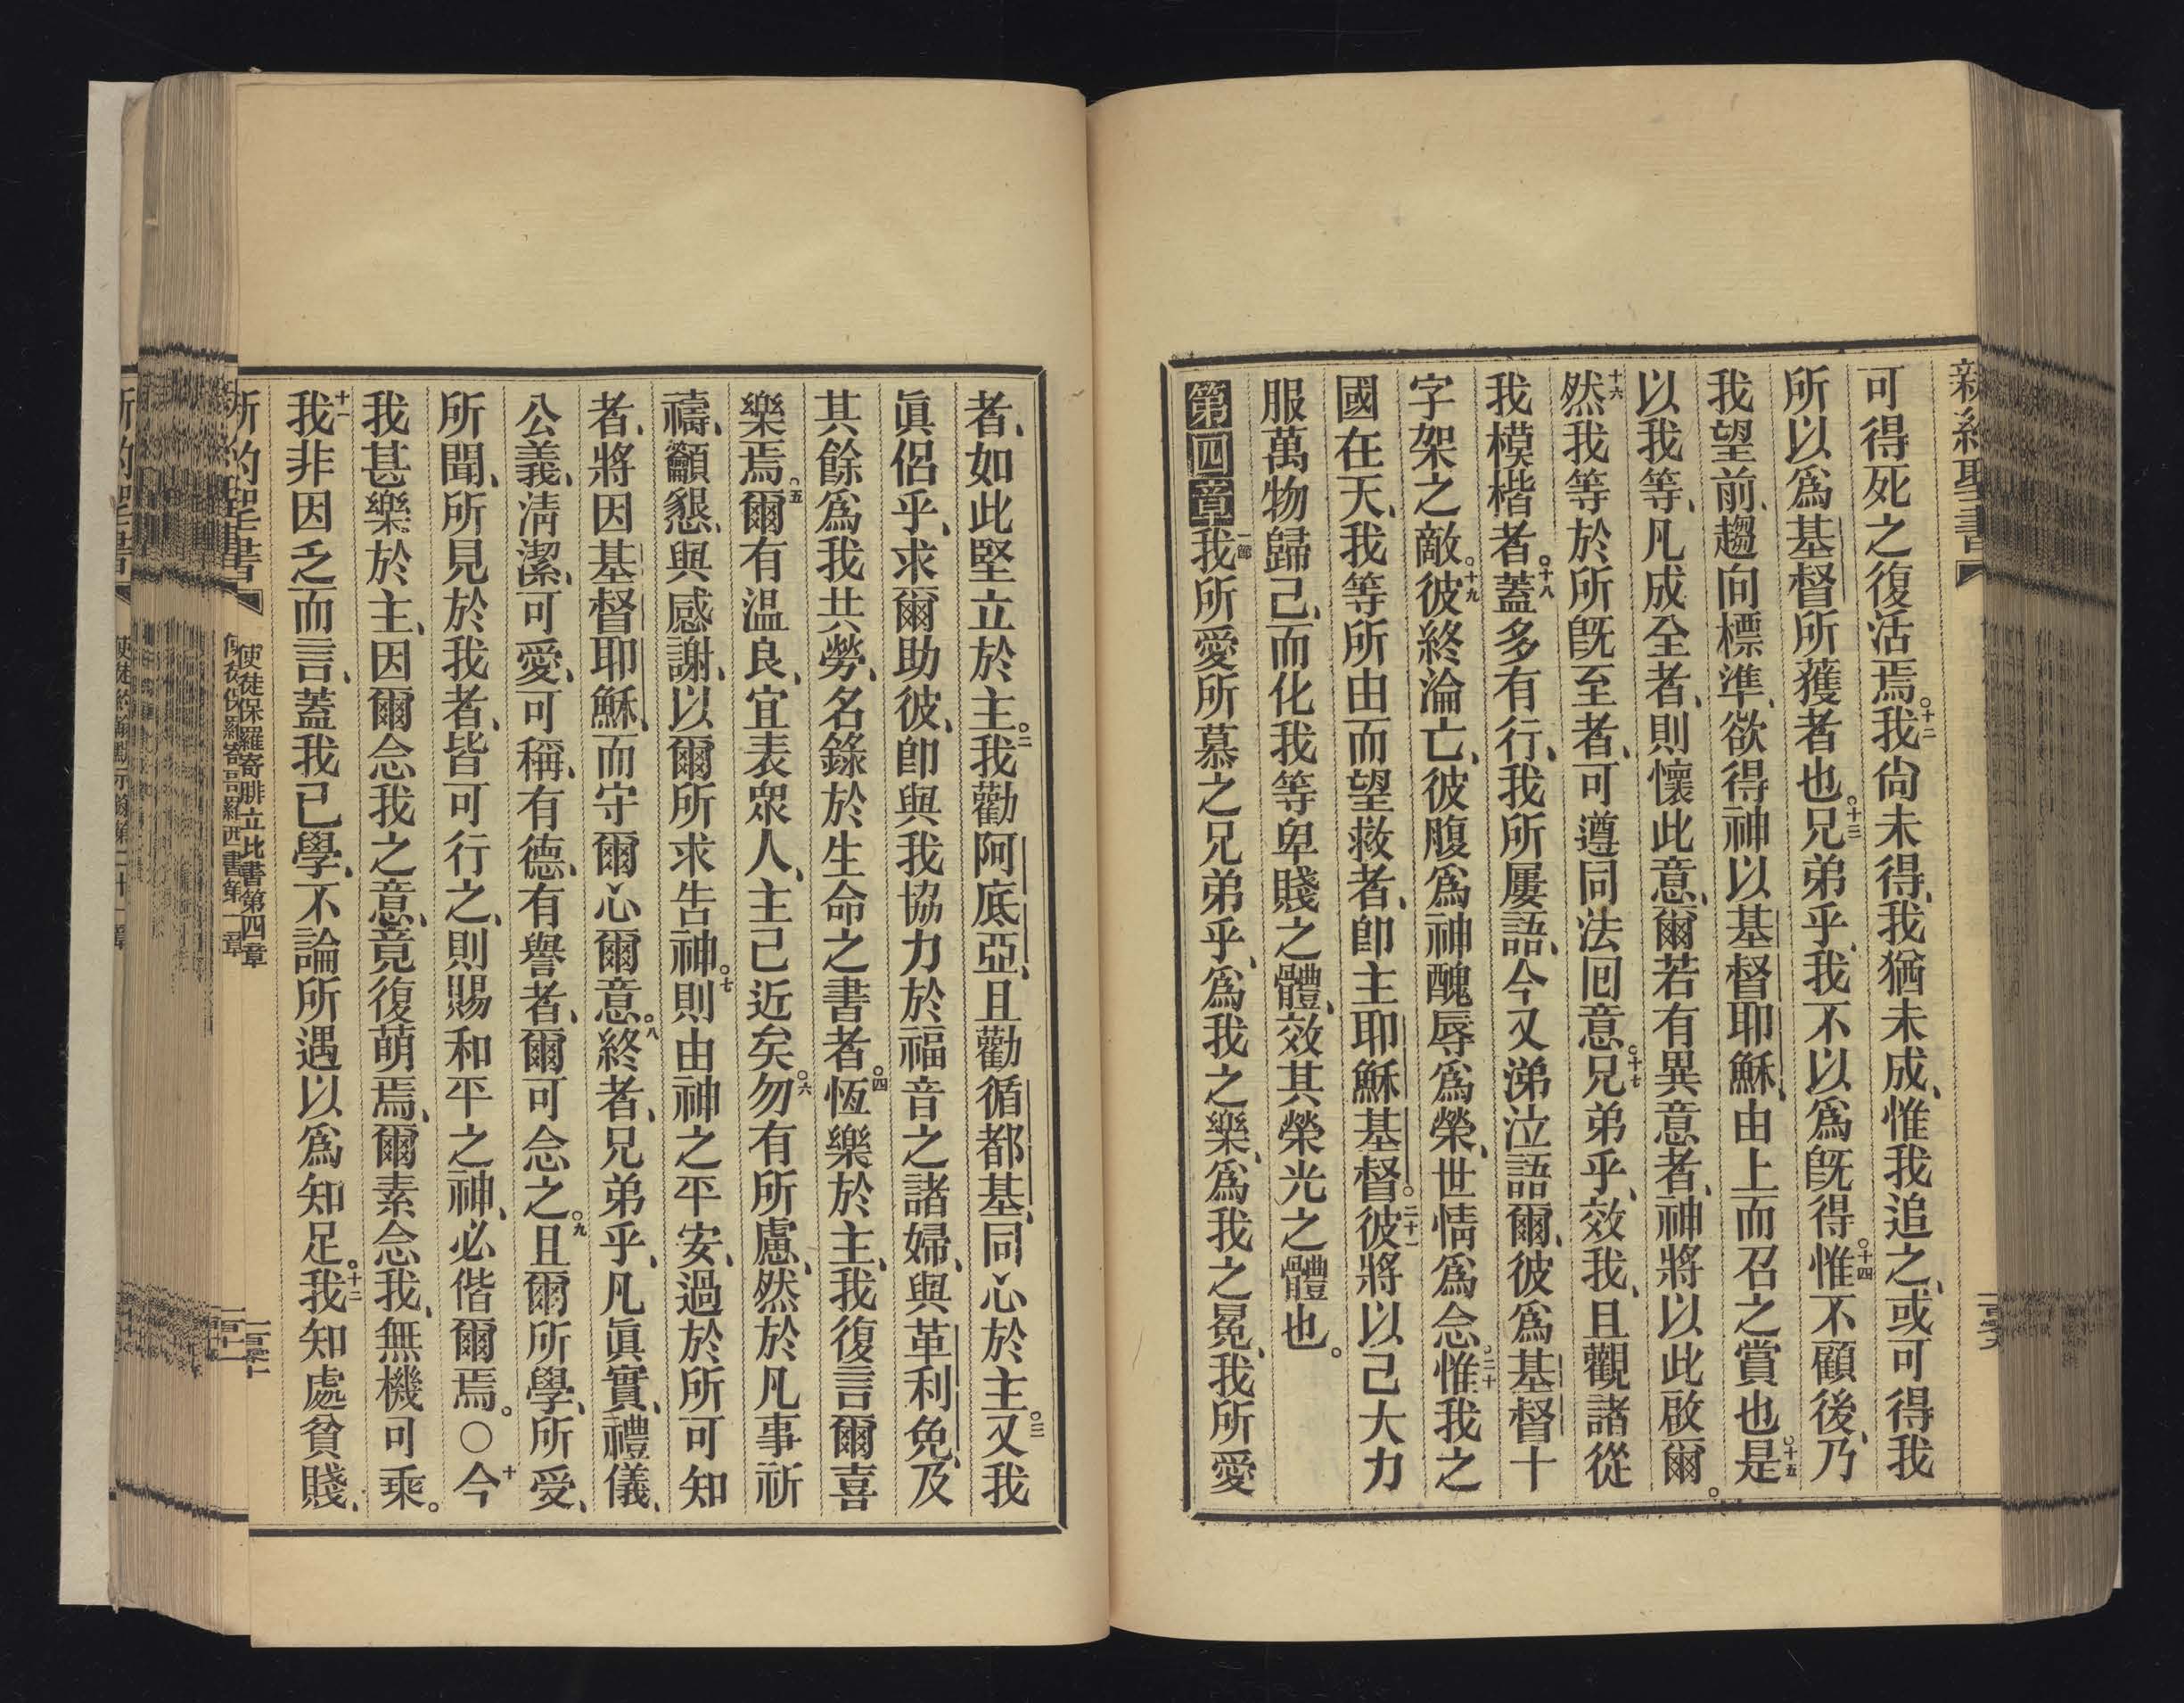 新約聖書
可得死之復活焉。十二我尙未得、我猶未成、惟我追之、或可得我
所以爲基督所獲者也。十三兄弟乎、我不以爲旣得。十四惟不顧後、乃
我望前、趨向標準、欲得神以基督耶穌、由上而召之賞也。十五是
以我等、凡成全者、則懷此意、爾若有異意者、神將以此啟爾。
十六然我等於所旣至者、可遵同法同意。十七兄弟乎、效我、且觀諸從
我模楷者。十八蓋多有行、我所屢語、今又涕泣語爾、彼爲基督十
字架之敵。十九彼終淪亡、彼腹爲神、醜辱爲榮、世情爲念。二十惟我之
國在天、我等所由而望救者、卽主耶穌基督。二十一彼將以己大力
服萬物歸己、而化我等卑賤之體、效其榮光之體也。
第四章 一節我所愛所慕之兄弟乎、爲我之樂、爲我之冕、我所愛
者、如此堅立於主。二我勸阿底亞、且勸循都基、同心於主。三又我
眞侶乎、求爾助彼、卽與我協力於福音之諸婦、與革利免、及
其餘爲我共勞、名錄於生命之書者。四恆樂於主、我復言爾喜
樂焉。五爾有温良、宜表衆人、主已近矣。六勿有所慮、然於凡事祈
禱、籲懇、與感謝、以爾所求告神。七則由神之平安、過於所可知
者、將因基督耶穌、而守爾心爾意。八終者、兄弟乎、凡眞實、禮儀、
公義、淸潔、可愛、可稱、有德、有譽者、爾可念之。九且爾所學、所受、
所聞、所見於我者、皆可行之、則賜和平之神、必偕爾焉。〇十今
我甚樂於主、因爾念我之意、竟復萌焉、爾素念我、無機可乘。
十一我非因乏而言、蓋我已學、不論所遇以爲知足。十二我知處貧賤、
新約聖書
使徒保羅寄腓立比書第四章